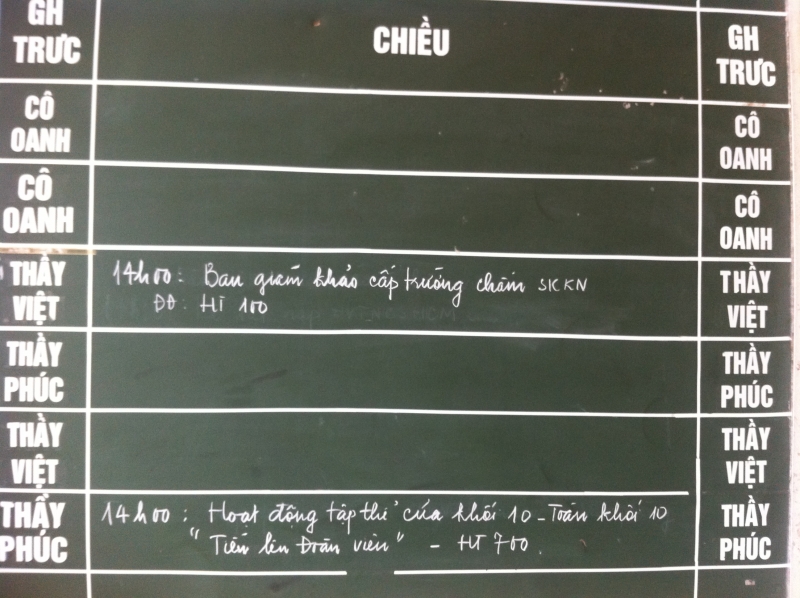 GH
TRỰC
CHIỀU
GH
TRỰC
CÔ
OANH
CÔ
OANH
CÔ
OANH
CÔ
OANH
THẦY
VIỆT
14h00: Ban giám khảo cấp trường chấm SKKN
ĐĐ: HT 100
THẦY
VIỆT
THẦY
PHÚC
THẦY
PHÚC
THẦY
VIỆT
THẦY
VIỆT
THẦY
PHÚC
14h00: Hoạt động tập thể của khối 10 - Toán khối 10
"Tiến lên Đoàn viên" - HT 700.
THẦY
PHÚC